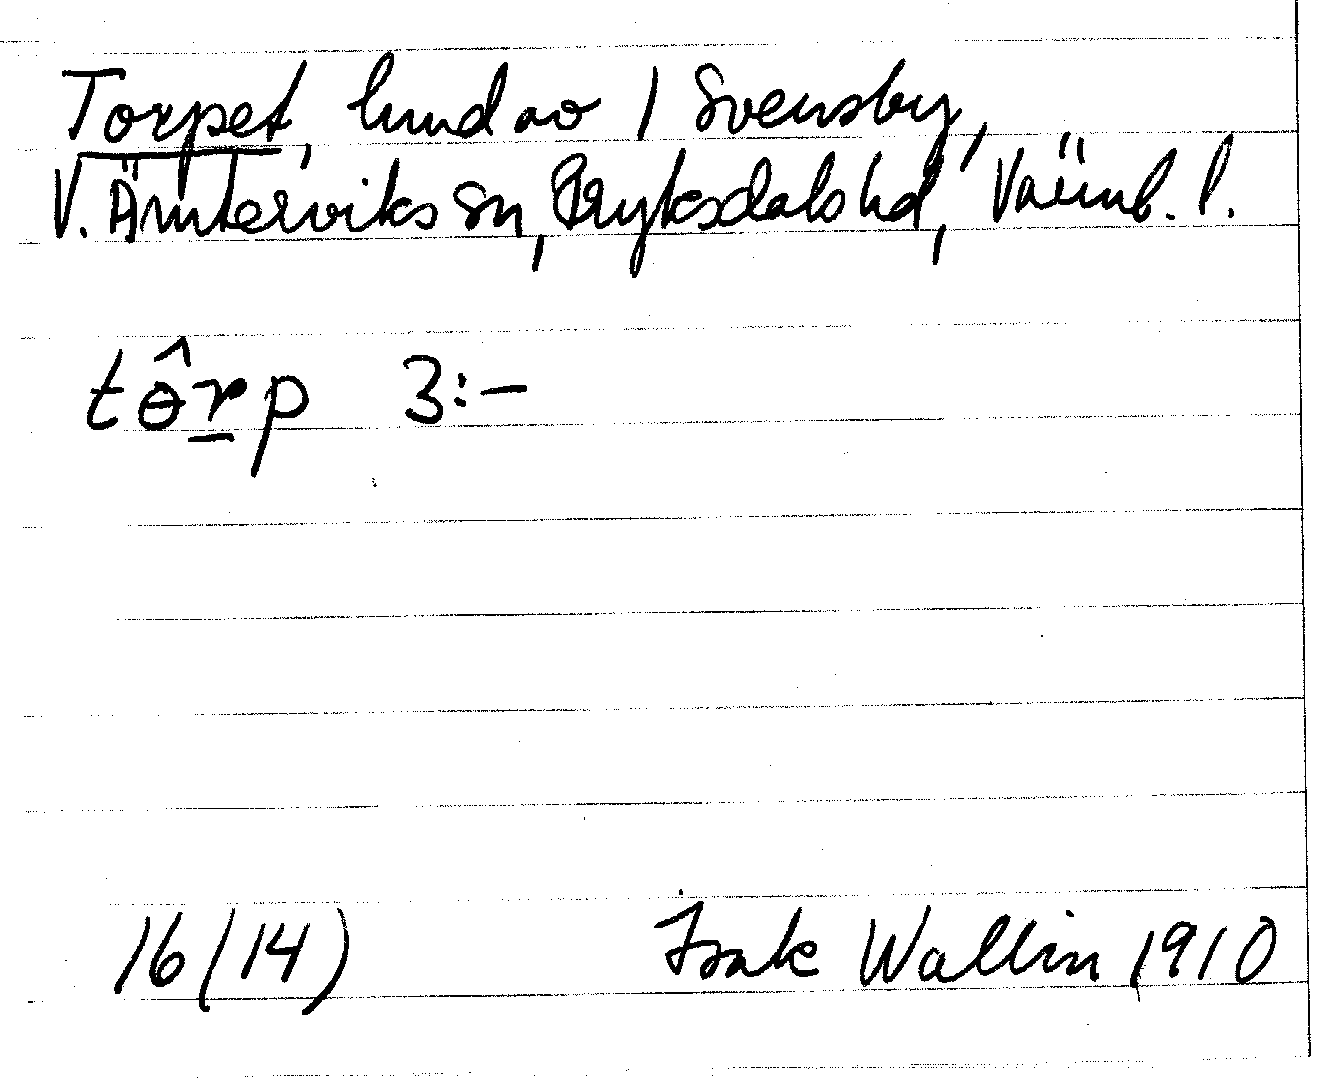 Torpet, lund av 1 Svensby,
V. Ämterviks sn, Fryksdals hd, Värml. l.
tɵ̂r̲p 3:-
16 (14) Isak Wallin 1910